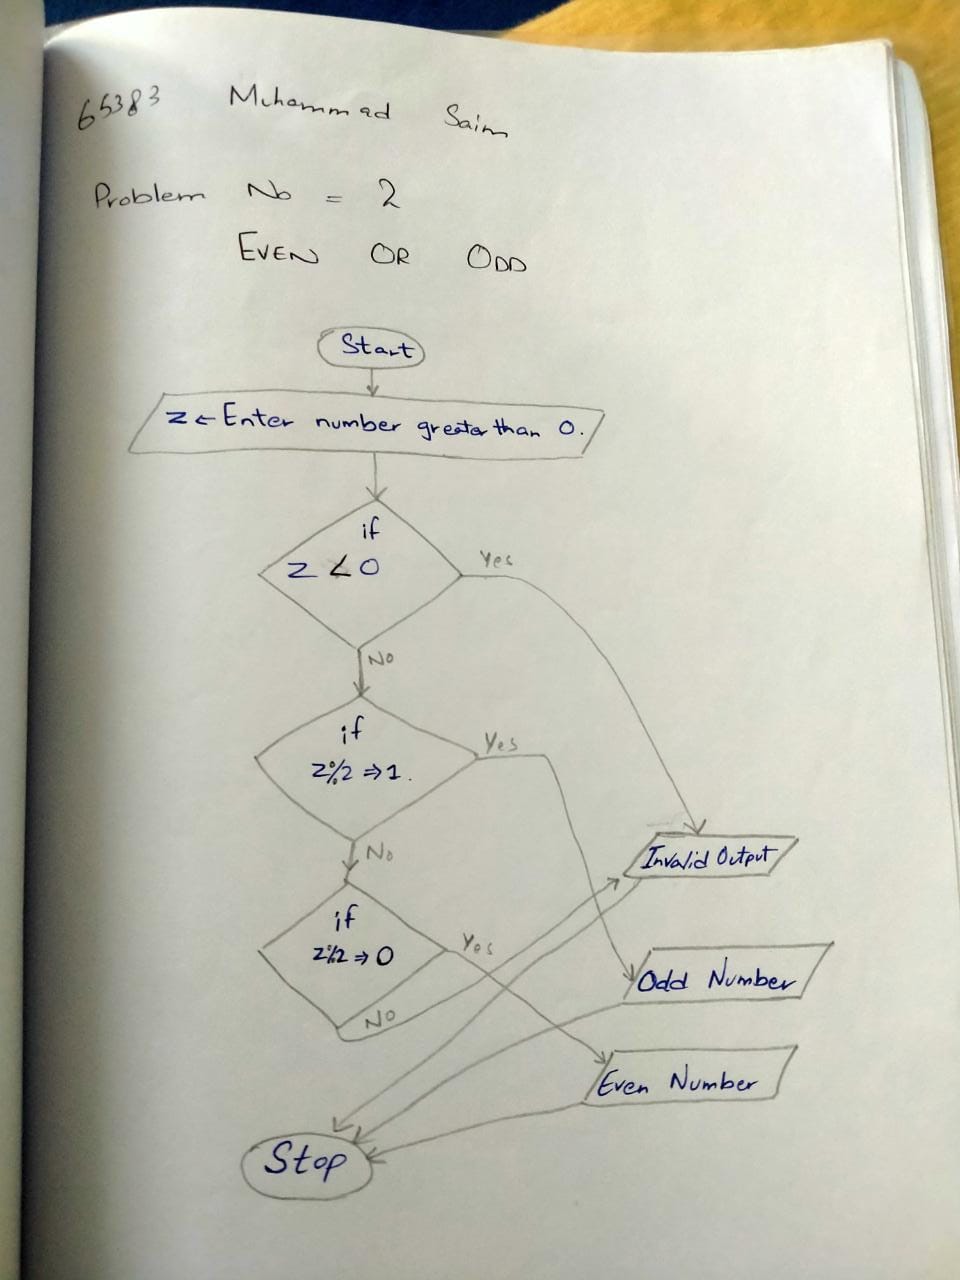 65383 Muhammad Saim
Problem No = 2
EVEN OR ODD
Start
z ← Enter number greater than 0.
if
z < 0
Yes
No
if
z%2 ⇒ 1.
Yes
No
Invalid Output
if
z%2 ⇒ 0
Yes
No
Odd Number
Even Number
Stop